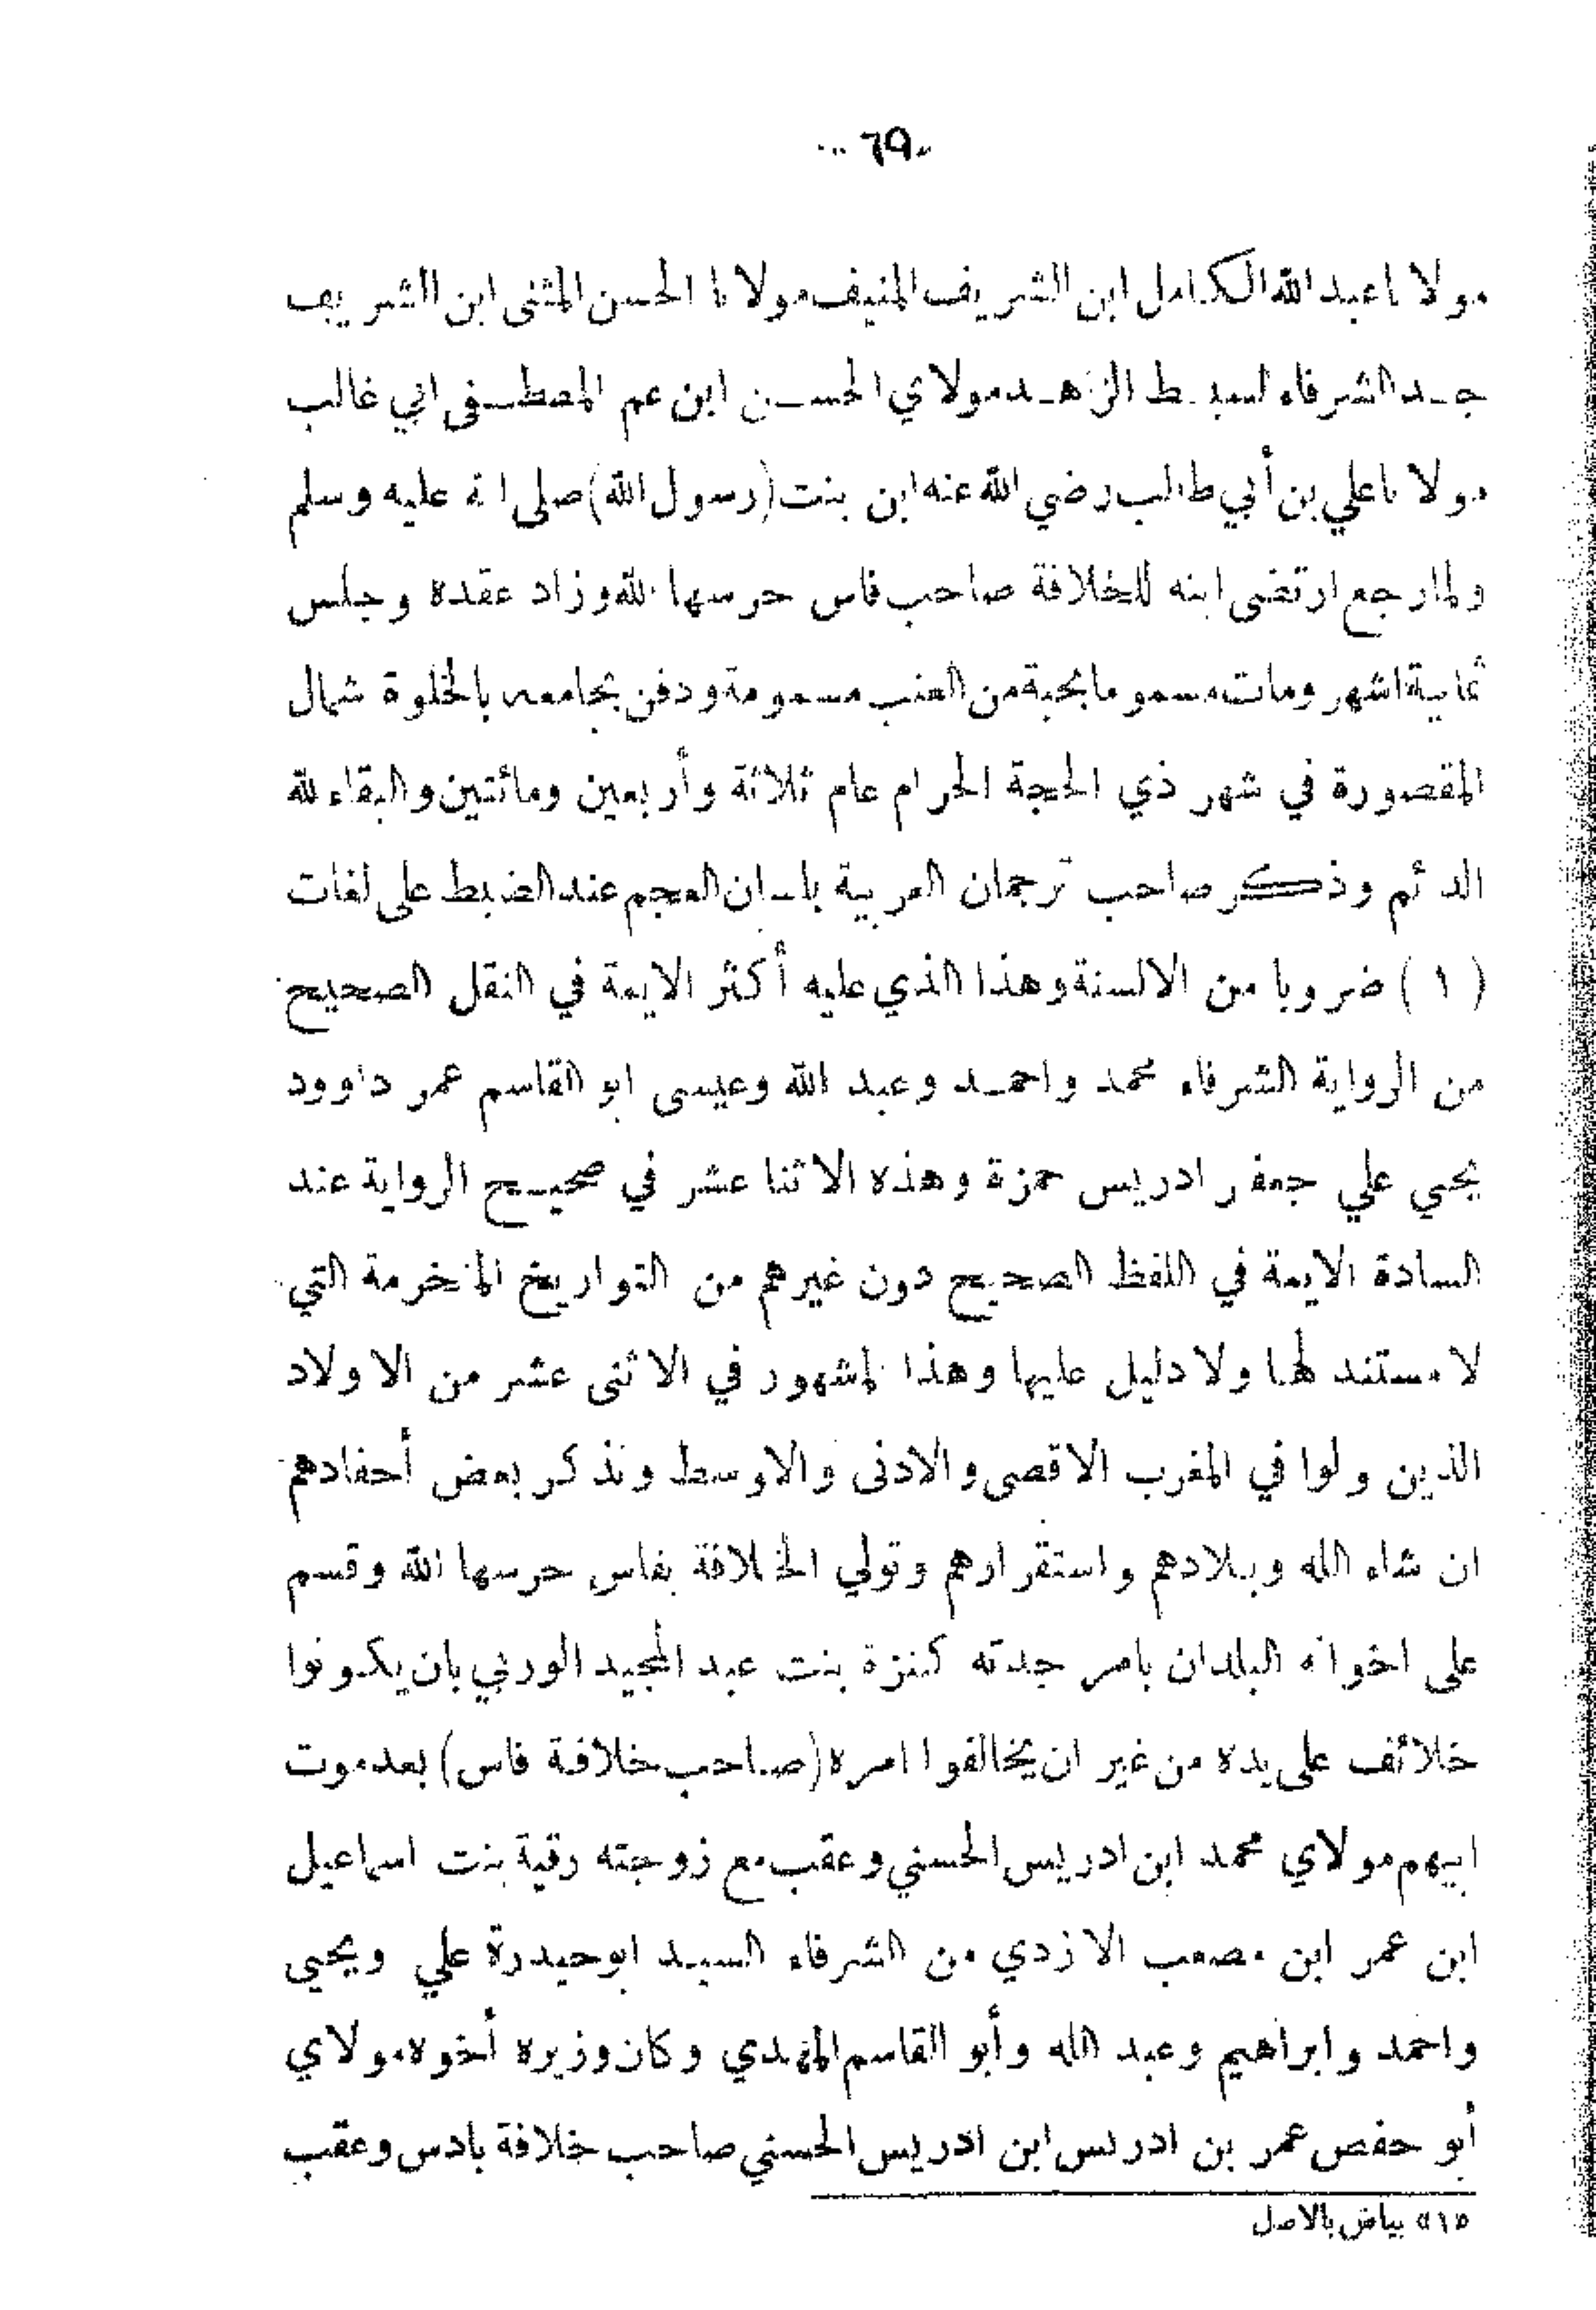 - ٦٩ -
مولانا عبد الله الكامل ابن الشريف المنيف مولانا الحسن المثنى ابن الشريف
جد الشرفاء السبط الزاهد مولاي الحسن ابن عم المصطفى ابي غالب
مولانا علي بن أبي طالب رضي الله عنه ابن بنت (رسول الله) صلى الله عليه وسلم
ولما رجع ارتضى ابنه للخلافة صاحب فاس حرسها الله وزاد عقده وجلس
ثمانية اشهر ومات مسموما بحبة من العنب مسمومة ودفن بجامعه بالخلوة شمال
المقصورة في شهر ذي الحجة الحرام عام ثلاثة وأربعين ومائتين والبقاء لله
الدائم وذكر صاحب ترجمان العربية بلسان العجم عند الضبط على لغات
( ١ ) ضروبا من الالسنة وهذا الذي عليه أكثر الايمة في النقل الصحيح
من الرواية الشرفاء محمد واحمد وعبد الله وعيسى ابو القاسم عمر داوود
يحيي علي جعفر ادريس حمزة وهذه الاثنا عشر في صحيح الرواية عند
السادة الايمة في اللفظ الصحيح دون غيرهم من التواريخ المخرمة التي
لا مستند لها ولا دليل عليها وهذا المشهور في الاثنى عشر من الاولاد
الذين ولوا في المغرب الاقصى والادنى والاوسط ونذكر بعض أحفادهم
ان شاء الله وبلادهم واستقرارهم وتولي الخلافة بفاس حرسها الله وقسم
على اخوانه البلدان بامر جدته كنزة بنت عبد المجيد الوربي بان يكونوا
خلائف على يده من غير ان يخالفوا امره (صاحب خلافة فاس) بعد موت
ابيهم مولاي محمد ابن ادريس الحسني وعقب مع زوجته رقية بنت اسماعيل
ابن عمر ابن مصعب الازدي من الشرفاء السيد ابو حيدرة علي ويحيي
واحمد وابراهيم وعبد الله وأبو القاسم المهدي وكان وزيره أخوه مولاي
أبو حفص عمر بن ادريس ابن ادريس الحسني صاحب خلافة بادس وعقب
«١» بياض بالاصل